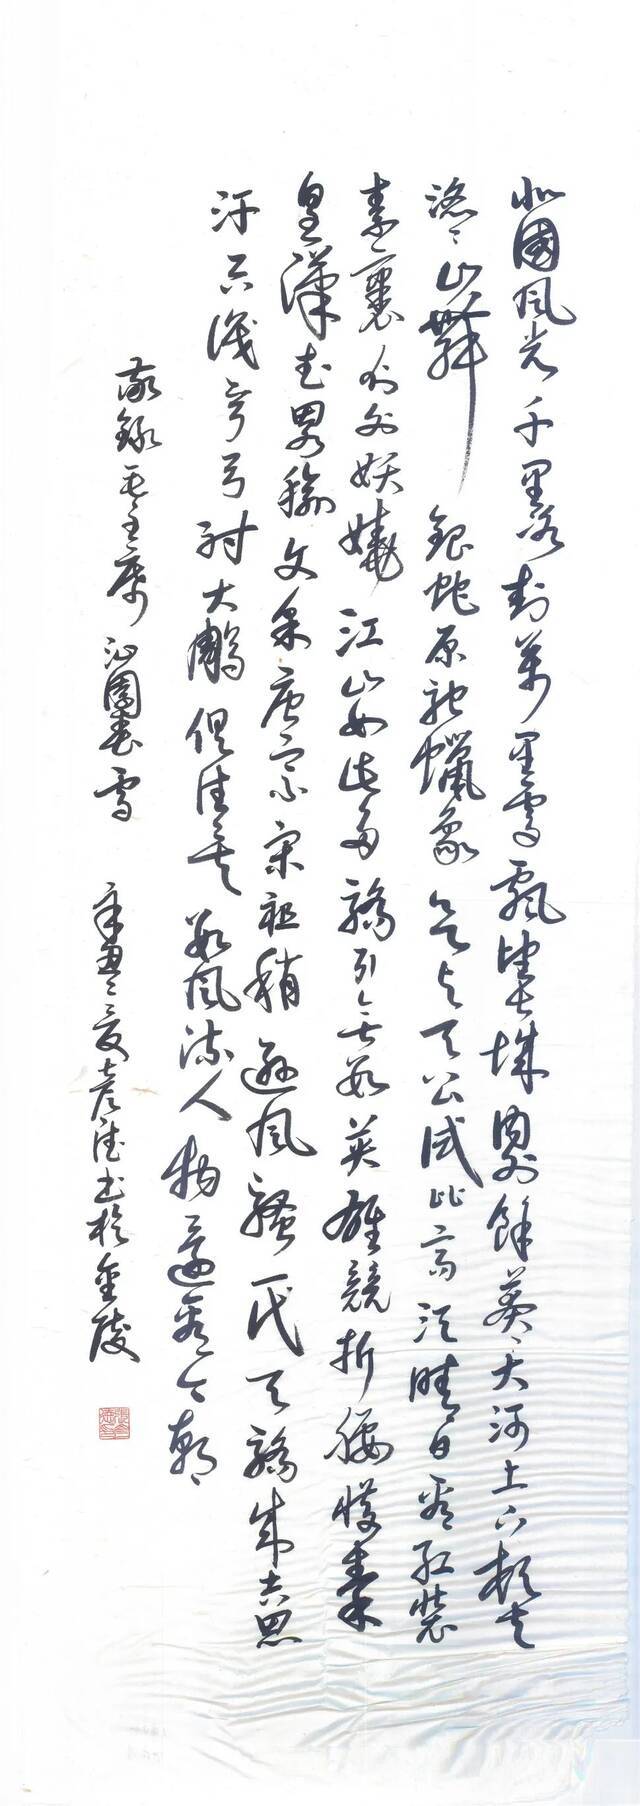 北國風光千里冰封萬里雪飄望長城內外餘莽〻大河上下頓失
滔〻山舞銀蛇原馳蠟象欲与天公試比高須晴日看紅裝
素裹分外妖嬈江山如此多嬌引無數英雄競折腰惜秦
皇漢武略輸文采唐宗宋祖稍遜風騷一代天驕成吉思
汗只識彎弓射大鵰俱往矣數風流人物還看今朝
敬錄毛主席沁園春雪 辛丑之夏書於金陵